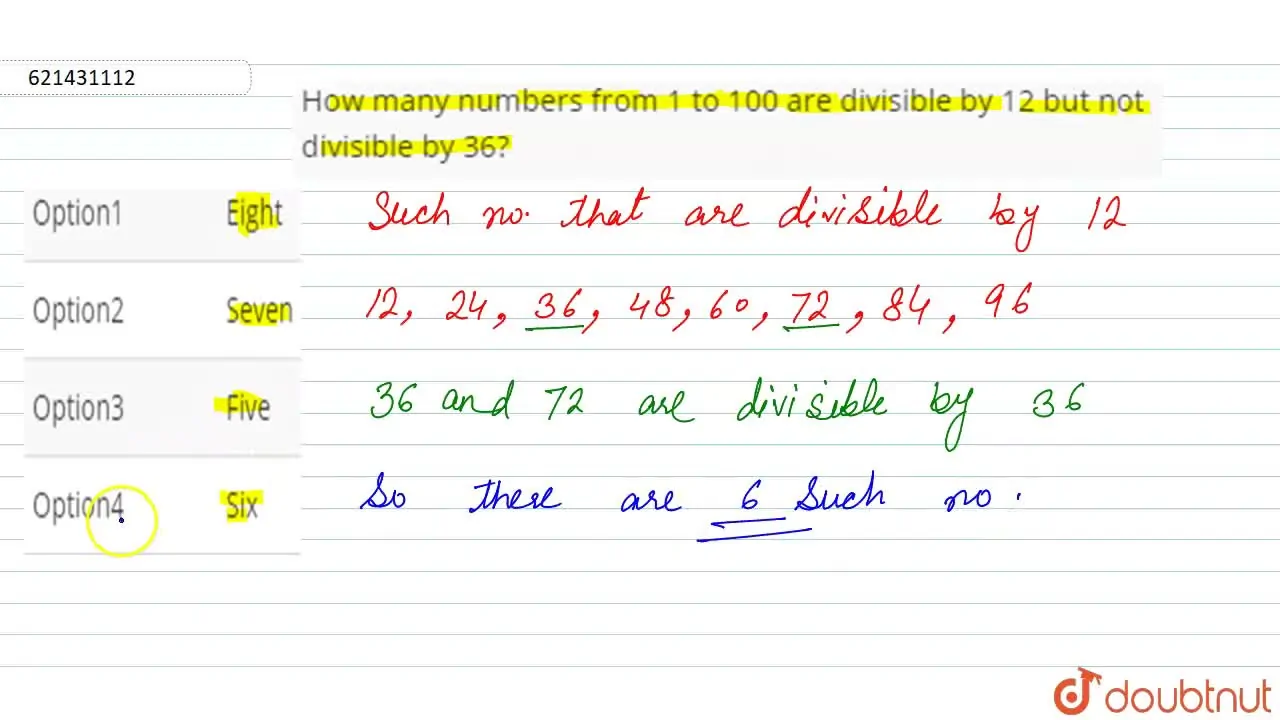 621431112
How many numbers from 1 to 100 are divisible by 12 but not
divisible by 36?
Option1 Eight
Such no. that are divisible by 12
Option2 Seven
12, 24, 36, 48, 60, 72, 84, 96
Option3 Five
36 and 72 are divisible by 36
Option4 Six
So there are 6 such no.
doubtnut